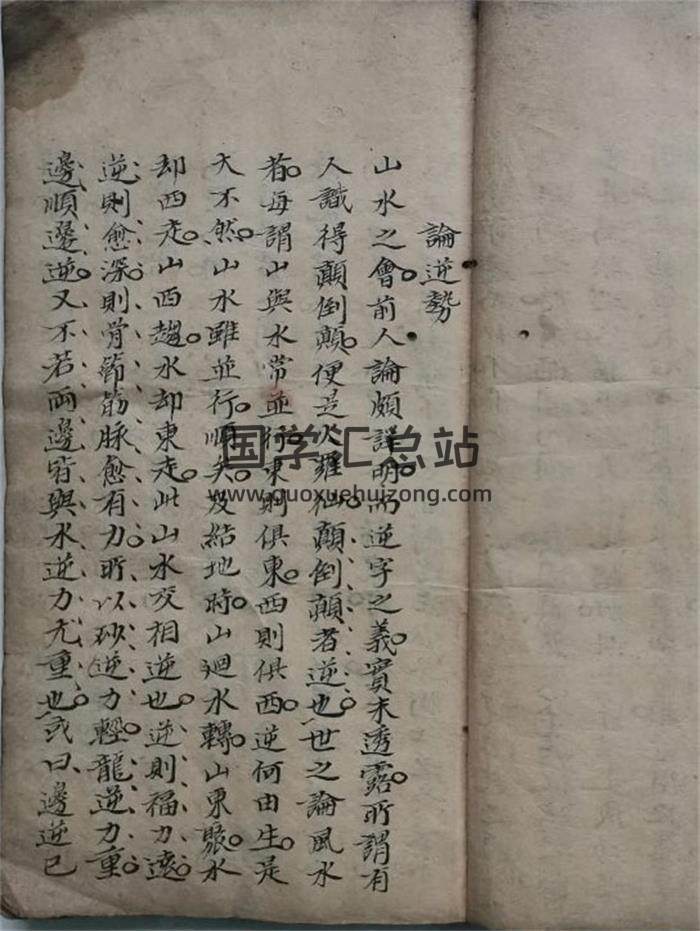 論逆勢
山水之會前人論頗詳明而逆字之義實未透露所謂有
人識得顛倒顛便是大羅仙顛倒顛者逆也世之論風水
者每謂山與水常並行東則俱東西則俱西逆何由生是
大不然山水雖並行順矣及結地時山迴水轉山東聚水
却西走山西趨水却東走此山水交相逆也逆則福力遠
逆則愈深則骨節筋脉愈有力所以砂逆力輕龍逆力重
邊順邊逆又不若兩邊皆與水逆力尤重也或曰邊逆已
国学汇总站
www.guoxuehuizong.com